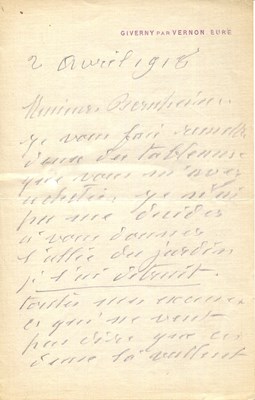 GIVERNY PAR VERNON EURE
2 avril 191
Messieurs Bernheim.
je vous fais remettre
deux des tableaux
que vous m'avez
achetés. je n'ai
pu me décider
à vous donner
l'allée du jardin
je l'ai détruit.
toutes mes excuses
ce qui ne veut
pas dire que ces
deux là vallent